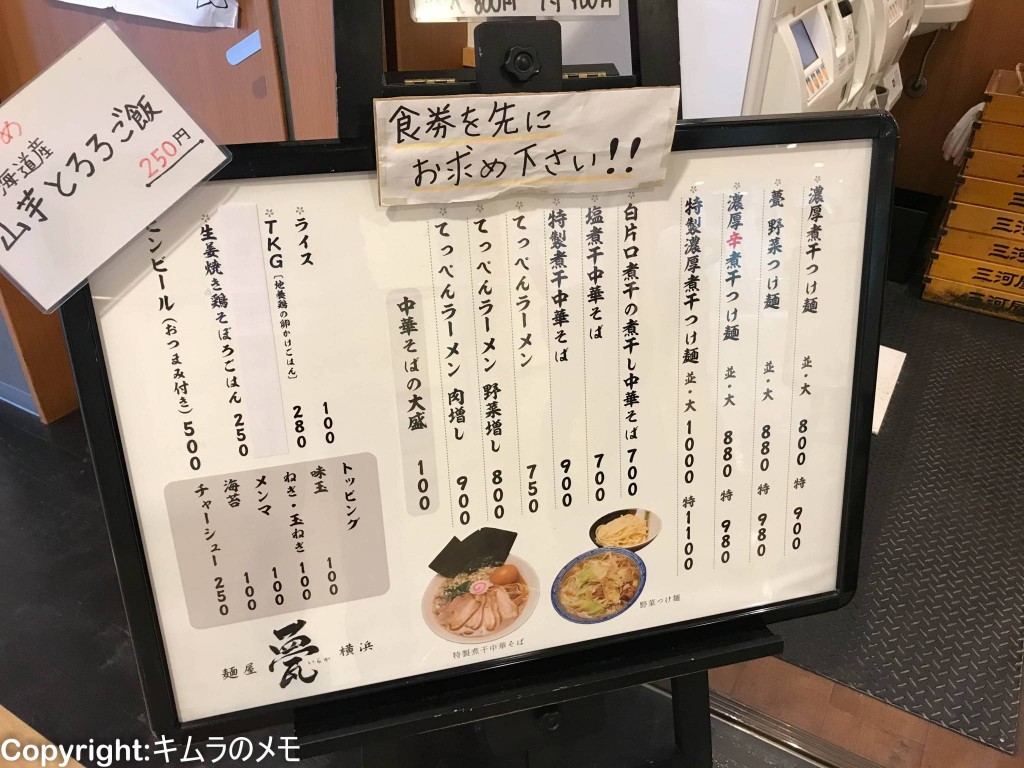 800円
食券を先に
お求め下さい!!
海道産
山芋とろろご飯
250円
濃厚煮干つけ麺 並・大 800 特 900
甍 野菜つけ麺 並・大 880 特 980
濃厚辛煮干つけ麺 並・大 880 特 980
特製濃厚煮干つけ麺 並・大 1000 特 1100
白片口煮干の煮干し中華そば 700
塩煮干中華そば 700
特製煮干中華そば 900
てっぺんラーメン 750
てっぺんラーメン 野菜増し 800
てっぺんラーメン 肉増し 900
中華そばの大盛 100
ライス 100
TKG [地養鶏の卵かけごはん] 280
生姜焼き鶏そぼろごはん 250
ビンビール(おつまみ付き) 500
トッピング
味玉 100
ねぎ・玉ねぎ 100
メンマ 100
海苔 100
チャーシュー 250
特製煮干中華そば
野菜つけ麺
麺屋 甍 いらか 横浜
三河
三河屋
三河屋
Copyright:キムラのメモ